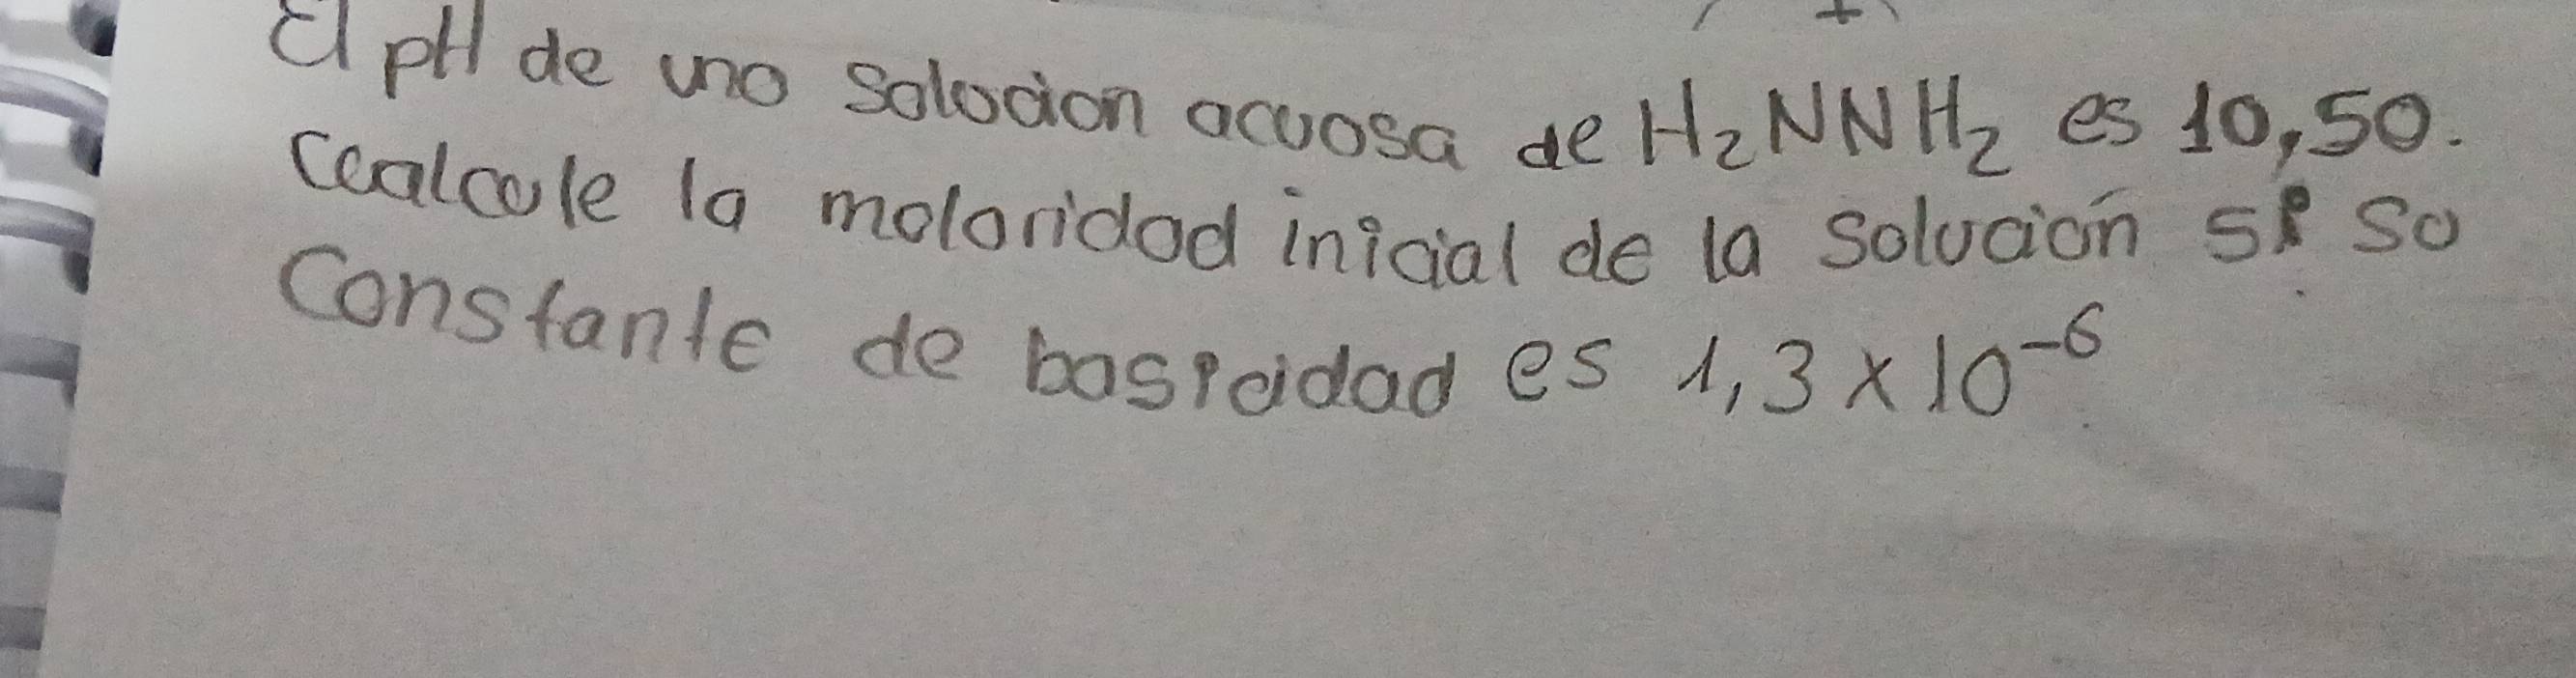 El pH de una Solución acuosa de H₂NNH₂ es 10,50.
Cealcule la molaridad inicial de la solución si su
Constante de basicidad es 1,3 x 10⁻⁶